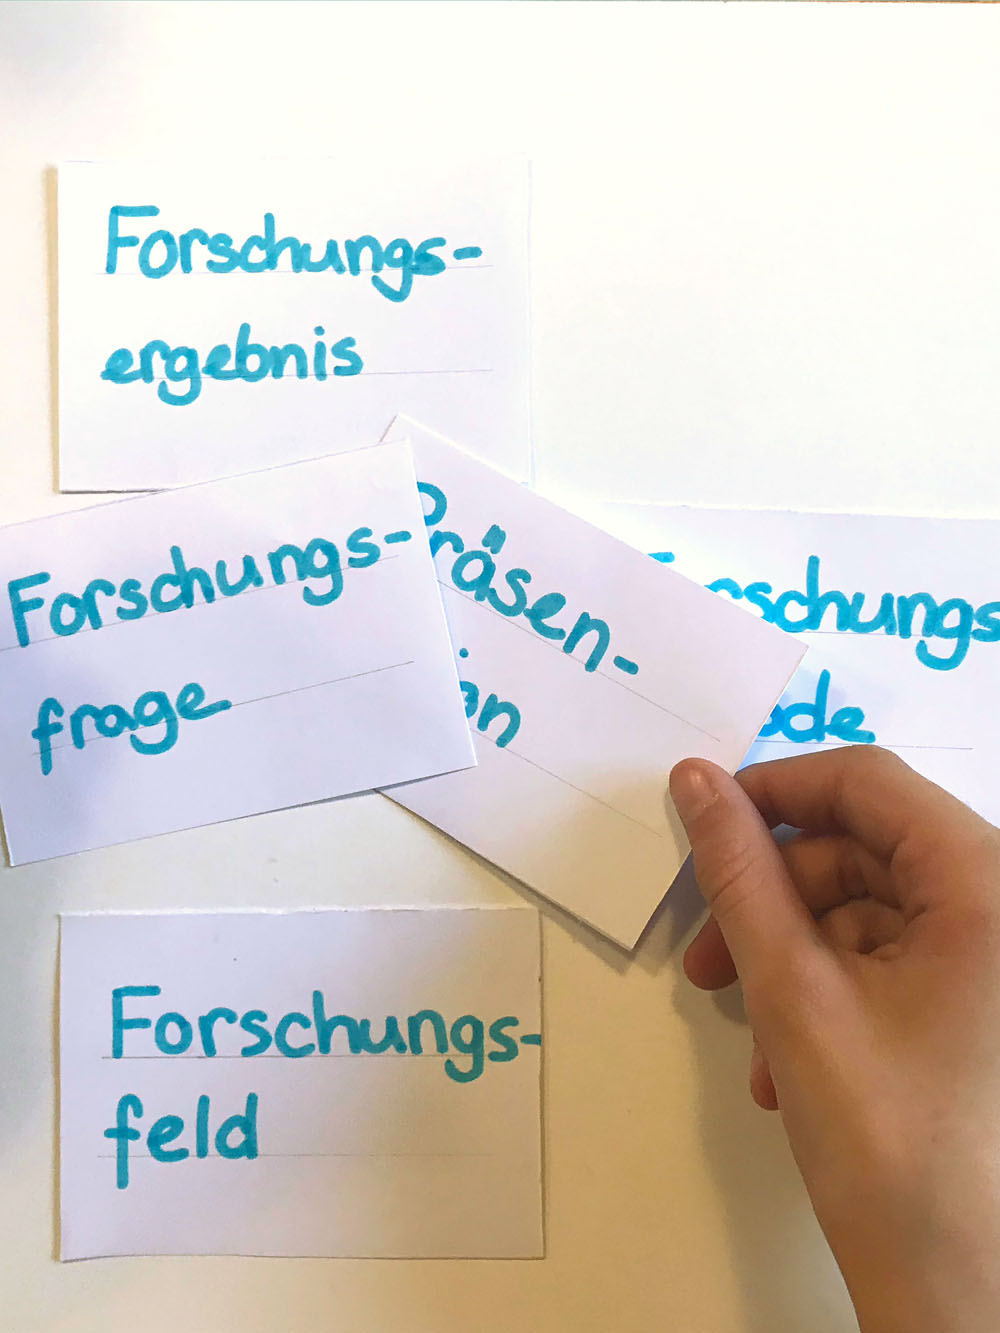 Forschungs-
ergebnis
Forschungs-
frage
Präsen-
Forschungs
Forschungs-
feld